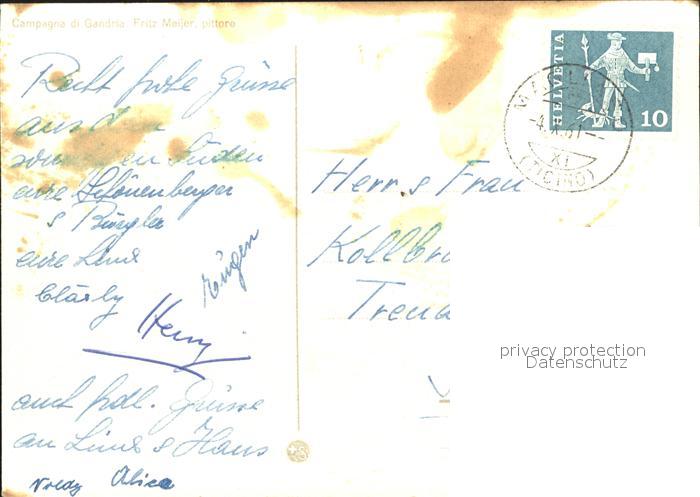 Campagna di Gandria. Fritz Meijer, pittore
Recht frohe Grüsse
aus dem
sonnigen Süden
eure Schönenberger
& Bürgler
eure Lina
Clärly
Eugen
Heiny
auch frdl. Grüsse
an Lina & Hans
Vredy Alice
HELVETIA
10
XI
(TICINO)
Herr & Frau
Kollbru
Treua
privacy protection
Datenschutz